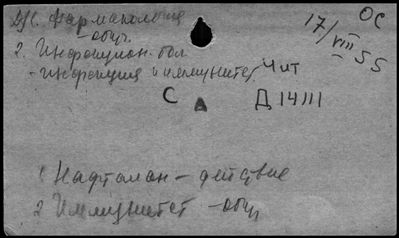 Д/С. Фармакология
- общ.
ОС
17/VIII 55
2. Инфекцион. бол
- инфекция и иммунитет
Чит
С А Д 14111
1 Нафталан – действие
2 Иммунитет - общ